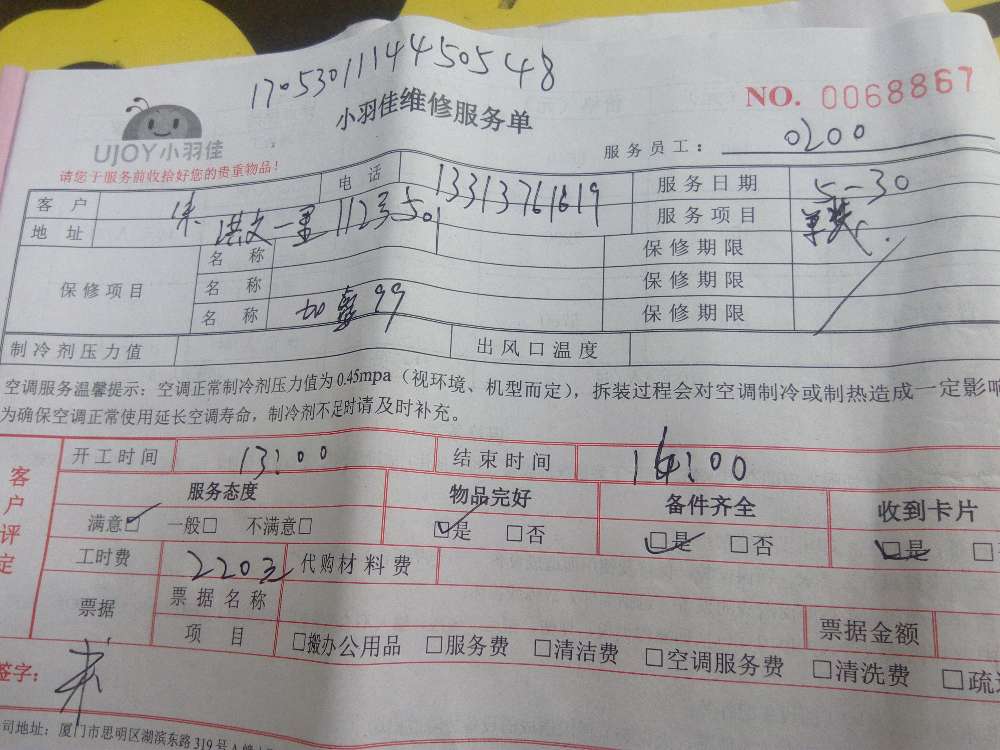 1705301114450548
NO. 0068867
小羽佳维修服务单
UJOY小羽佳
服务员工： 0200
请您于服务前收拾好您的贵重物品!
客户 朱 电话 13313761619 服务日期 5-30
地址 洪文一里112号501 服务项目 单装
保修项目 名称 保修期限
名称 保修期限
名称 加氟99 保修期限
制冷剂压力值 出风口温度
空调服务温馨提示：空调正常制冷剂压力值为0.45mpa（视环境、机型而定），拆装过程会对空调制冷或制热造成一定影响
为确保空调正常使用延长空调寿命，制冷剂不足时请及时补充。
客户评定
开工时间 13:00 结束时间
服务态度 物品完好 备件齐全 收到卡片
满意□ 一般□ 不满意□ □是 □否 □是 □否 □是 □
工时费 220元 代购材料费
票据 票据名称 票据金额
项目 □搬办公用品 □服务费 □清洁费 □空调服务费 □清洗费 □疏
签字： 朱
司地址：厦门市思明区湖滨东路319号A